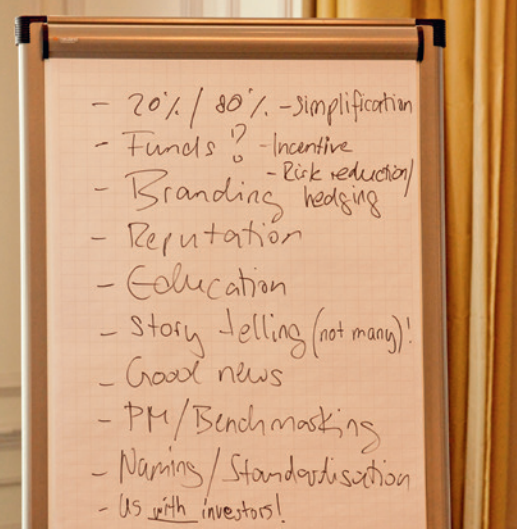 - 20% / 80% - simplification
- Funds ? - Incentive
- Risk reduction/
- Branding hedging
- Reputation
- Education
- Story telling (not many)!
- Good news
- PM/Benchmarking
- Naming / Standardisation
- Us with investors!